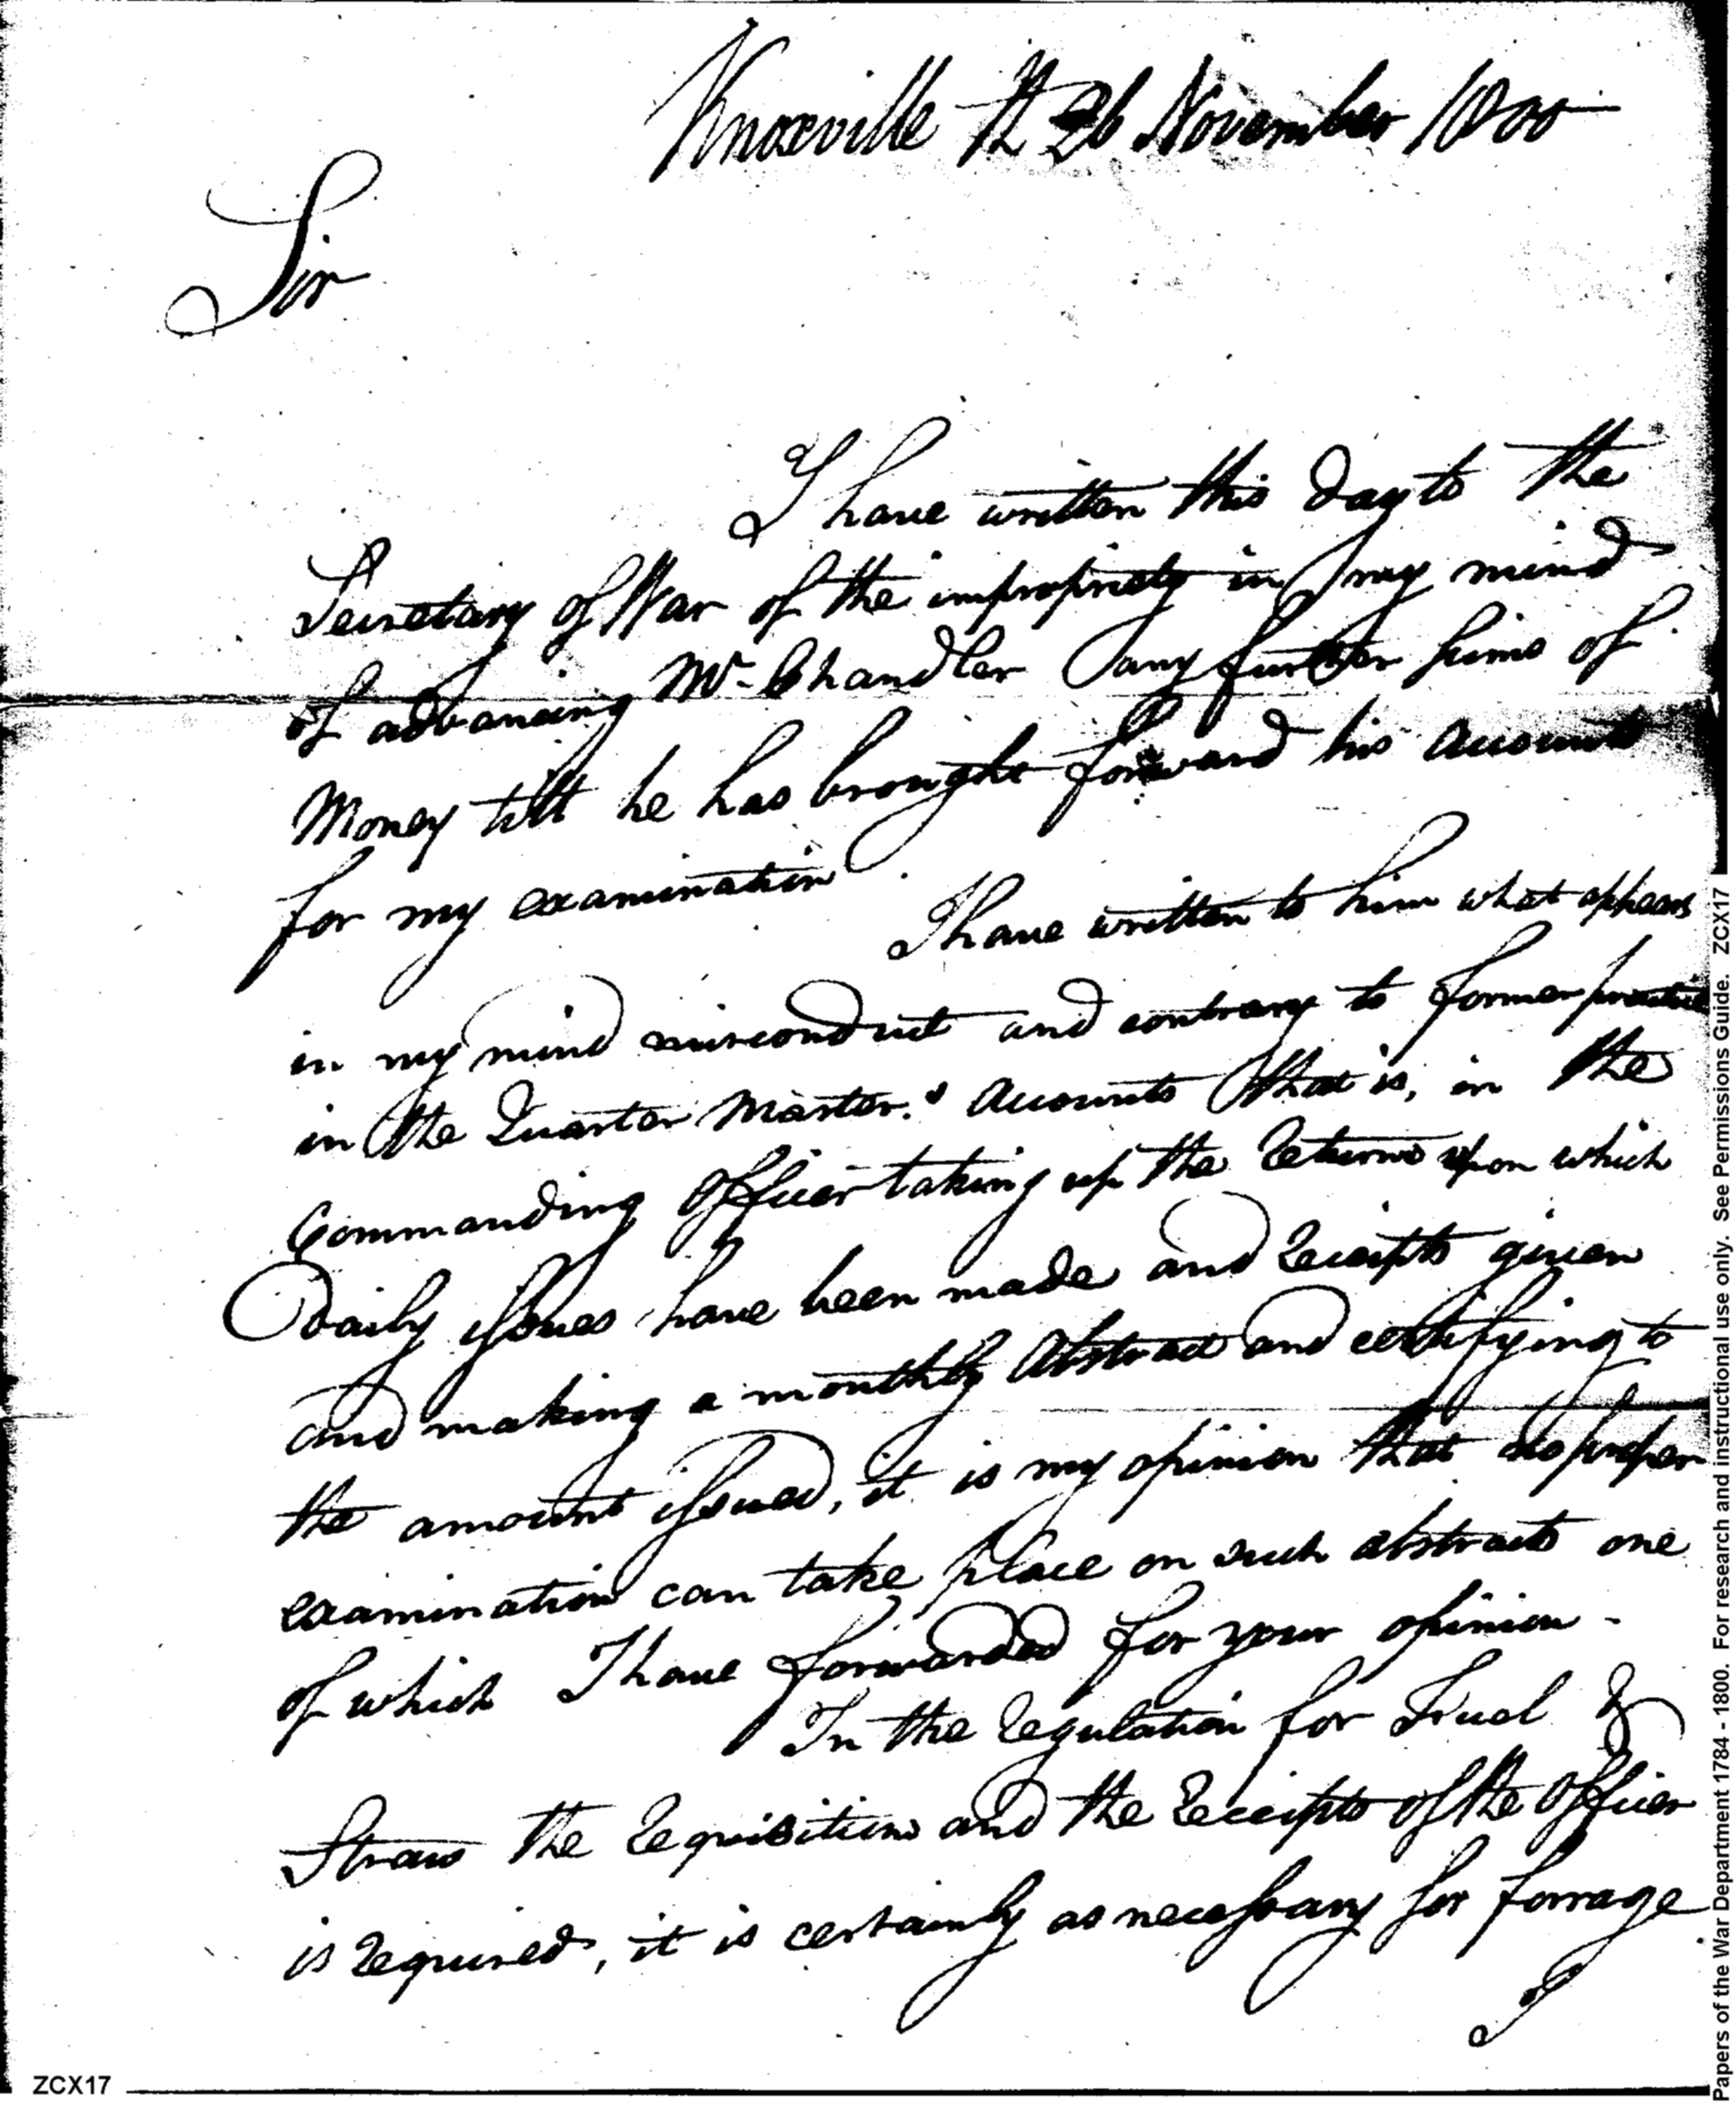 Knoxville th 26 November 1800
Sir
I have written this Day to the
Secretary of War of the impropriety in my mind
of advancing Mr. Chandler any further sums of
Money till he has brought forward his Accounts
for my examination
I have written to him what appears
in my mind misconduct and contrary to former practice
in the Quarter Master.s Accounts that is, in the
Commanding Officer taking up the Returns upon which
Daily issues have been made and Receipts given
and making a monthly Abstract and certifying to
the amount issued, it is my opinion that no proper
examination can take place on such abstracts one
of which I have forwarded for your opinion -
In the Regulation for Fuel &
Straw the Requisition and the Receipts of the Officer
is Required, it is certainly as necessary for forrage
ZCX17
Papers of the War Department 1784 - 1800. For research and instructional use only. See Permissions Guide. ZCX17